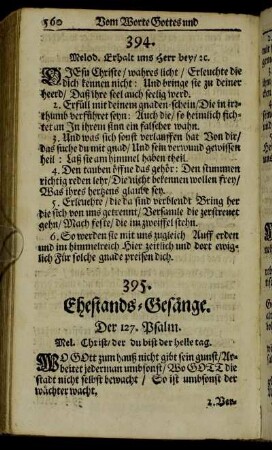 560 Vom Worte Gottes und
394.
Melod. Erhalt uns Herr bey/ ꝛc.
O JEsu Christe/ wahres licht/ Erleuchte die
dich kennen nicht: Und bringe sie zu deiner
heerd/ Daß ihre seel auch seelig werd.
2. Erfüll mit deinem gnaden-schein/ Die in irr-
thumb verführet seyn: Auch die/ so heimlich fich-
tet an In ihrem sinn ein falscher wahn.
3. Und was sich sonst verlauffen hat Von dir/
das suche du mit gnad/ Und sein verwund gewissen
heil: Laß sie am himmel haben theil.
4. Den tauben öffne das gehör: Den stummen
richtig reden lehr/ Die nicht bekennen wollen frey/
Was ihres hertzens glaube sey.
5. Erleuchte/ die da sind verblendt Bring her
die sich von uns getrennt/ Versamle die zerstreuet
gehn/ Mach feste/ die im zweiffel stehn.
6. So werden sie mit uns zugleich Auff erden
und im himmelreich Hier zeitlich und dort ewig-
lich Für solche gnade preisen dich.
395.
Ehestands-Gesänge.
Der 127. Psalm.
Mel. Christ/ der du bist der helle tag.
WO GOtt zum hauß nicht gibt sein gunst/ Ar-
beitet jederman umbsonst/ Wo GOTT die
stadt nicht selbst bewacht/ So ist umbsonst der
wächter wacht.
2. Ver-